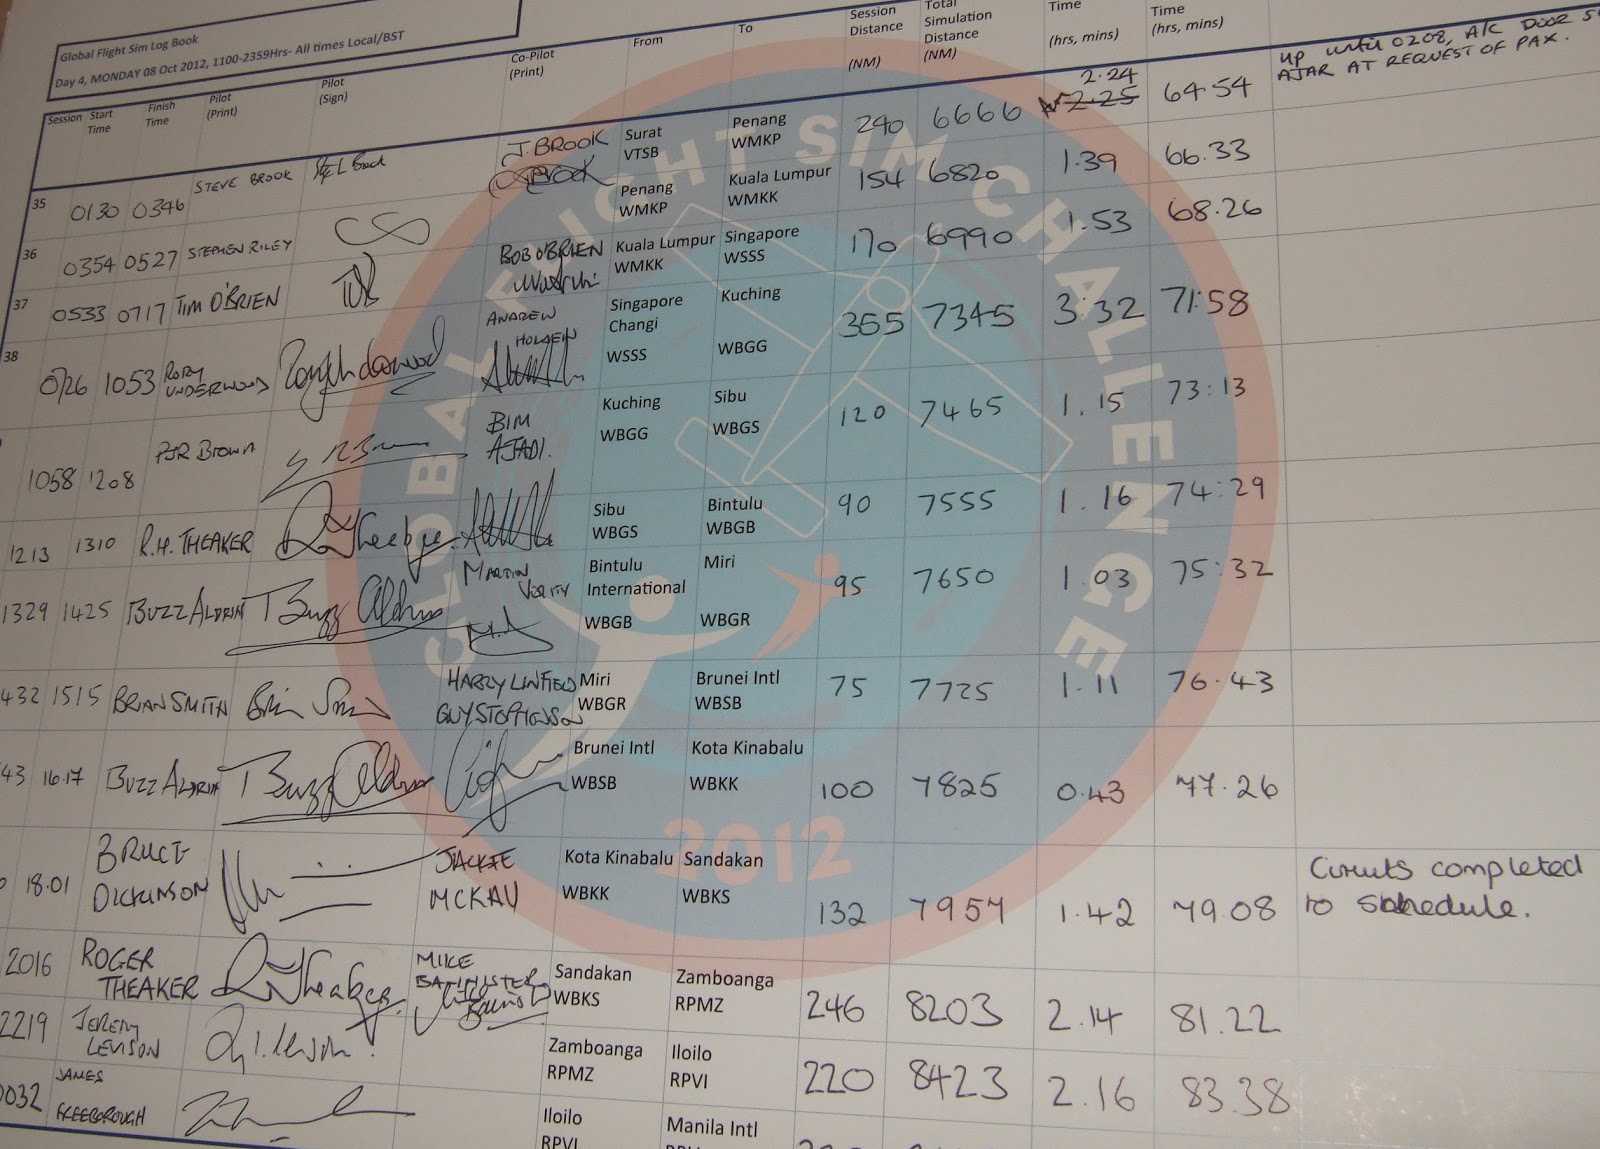 Global Flight Sim Log Book
Day 4, MONDAY 08 Oct 2012, 1100-2359Hrs- All times Local/BST
Session Start Time Finish Time Pilot (Print) Pilot (Sign) Co-Pilot (Print) From To Session Distance (NM) Total Simulation Distance (NM) Time (hrs, mins) Time (hrs, mins)
UP until 0208, A/C DOOR
AJAR AT REQUEST OF PAX.
35 0130 0346 STEVE BROOK J. BROOK Surat VTSB Penang WMKP 240 6666 2.25 2.24 64.54
36 0354 0527 STEPHEN RILEY BOB O'BRIEN Penang WMKP Kuala Lumpur WMKK 154 6820 1.39 66.33
37 0533 0717 TIM O'BRIEN Kuala Lumpur WMKK Singapore WSSS 170 6990 1.53 68.26
38 0726 1053 RORY UNDERWOOD ANDREW Singapore Changi WSSS Kuching WBGG 355 7345 3:32 71:58
1058 1208 Brown BIM AJADI. Kuching WBGG Sibu WBGS 120 7465 1.15 73:13
1213 1310 R.H. THEAKER Sibu WBGS Bintulu WBGB 90 7555 1.16 74:29
1329 1425 BUZZ ALDRIN Buzz Aldrin MARTIN VERITY Bintulu International WBGB Miri WBGR 95 7650 1.03 75:32
432 1515 BRIAN SMITH Brian Smith HARRY LINFIELD GUY STEPHENSON Miri WBGR Brunei Intl WBSB 75 7725 1.11 76.43
43 16.17 BUZZ ALDRIN Buzz Aldrin Brunei Intl WBSB Kota Kinabalu WBKK 100 7825 0.43 77.26
18.01 BRUCE DICKINSON JACKIE MCKAY Kota Kinabalu WBKK Sandakan WBKS 132 7957 1.42 79.08 Circuits completed to schedule.
2016 ROGER THEAKER R Theaker MIKE Sandakan WBKS Zamboanga RPMZ 246 8203 2.14 81.22
2219 JEREMY LEVISON Zamboanga RPMZ Iloilo RPVI 220 8423 2.16 83.38
0032 JAMES FREEBOROUGH Iloilo RPVI Manila Intl
GLOBAL FLIGHT SIM CHALLENGE
2012